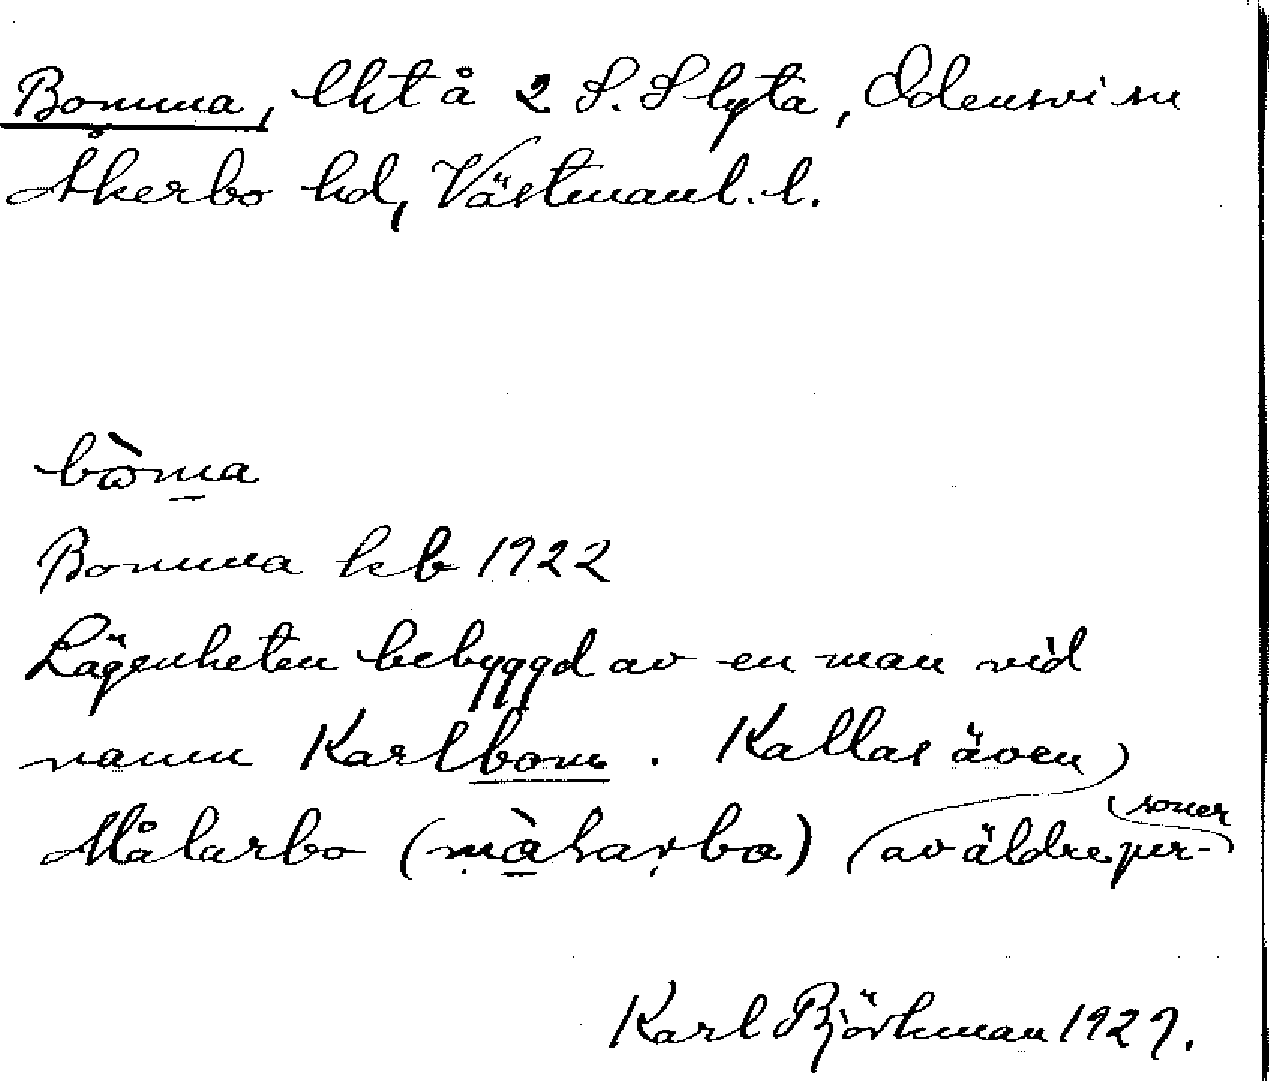 Bomma, lht å 2 S. Slyta, Odensvi sn
Åkerbo hd, Västmanl. l.
bo᷆ma
Bomma kb 1922
Lägenheten bebyggd av en man vid
namn Karlbom. Kallas även
Målarbo (màlarbo) (av äldre per-
soner
Karl Björkman 1929.